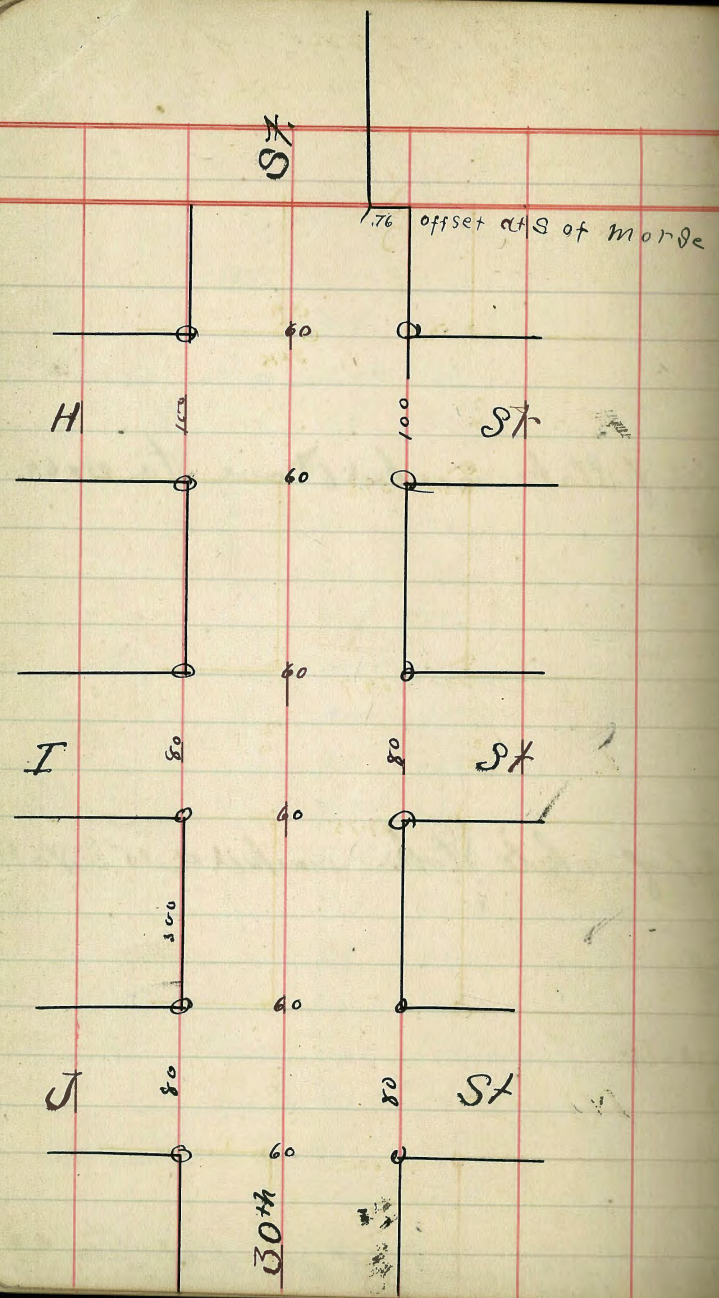 St
.76 offset at S of Morse
60
H 100 100 St
60
60
I 80 80 St
60
300
60
J 80 80 St
60
30th